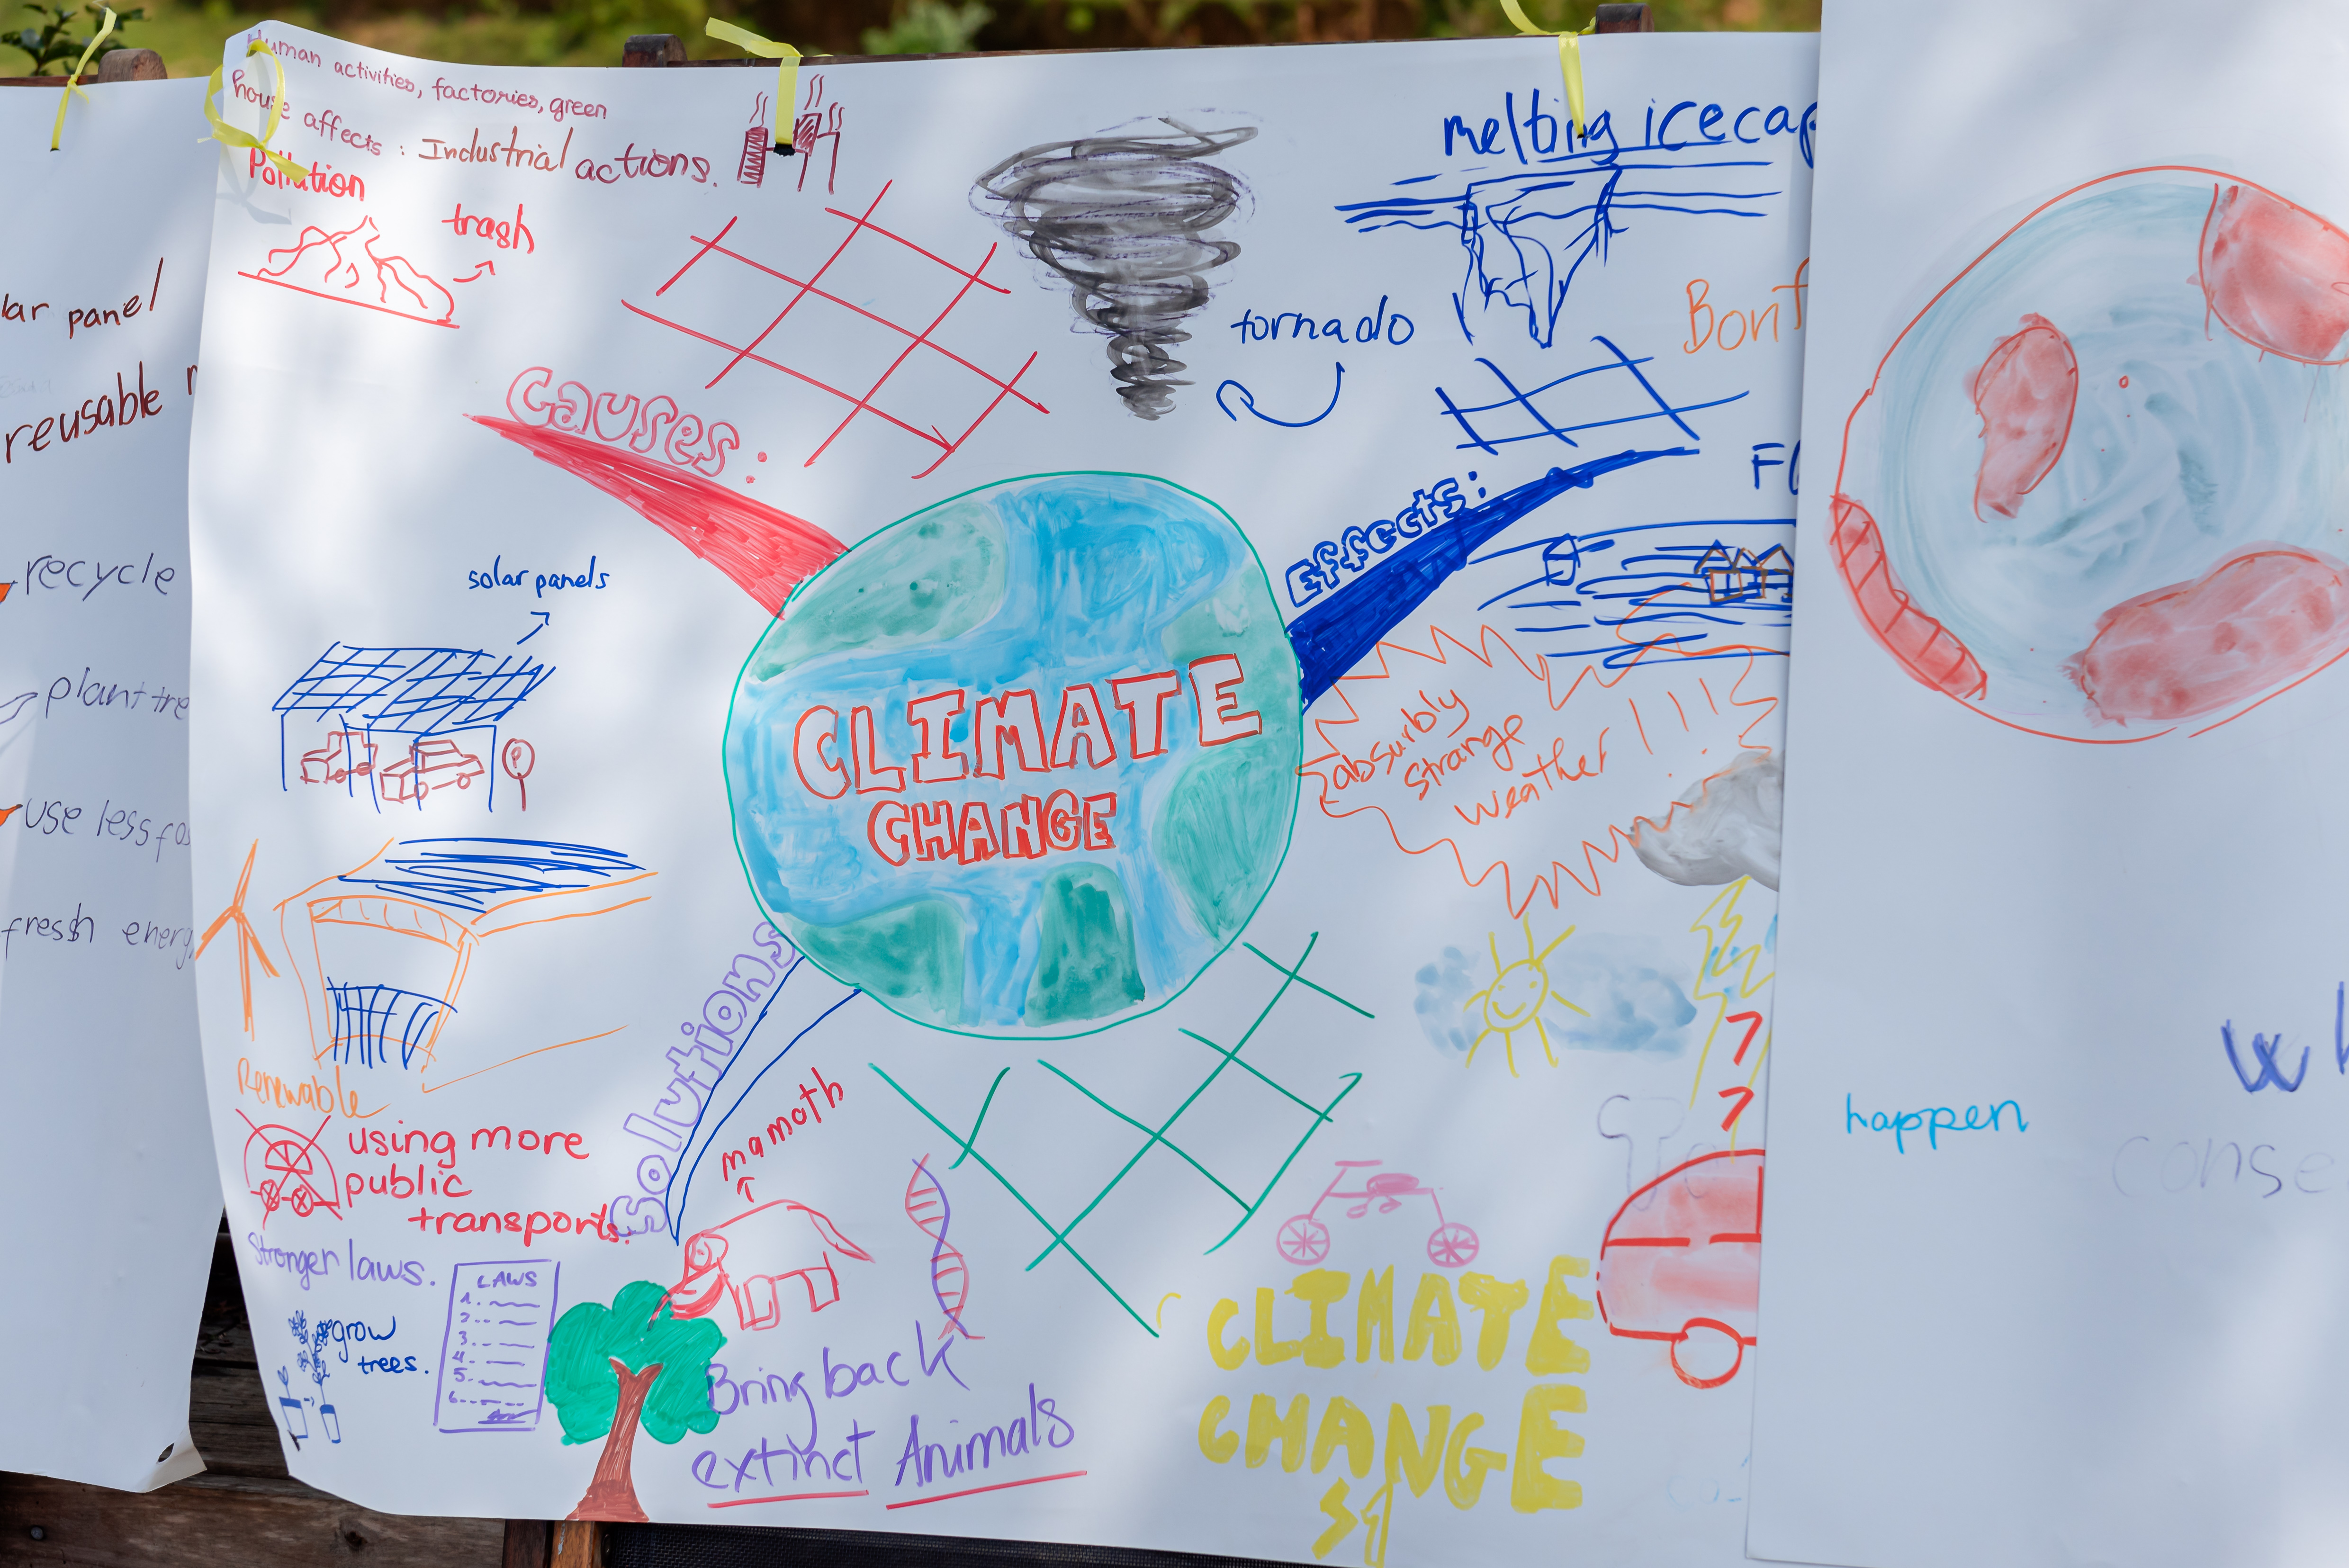 lar panel
reusable
recycle
plant tre
use less fos
fresh energy
Human activities, factories, green
house affects : Industrial actions.
Pollution
trash
causes:
tornado
melting icecap
Bonf
Effects:
absurbly
strange
weather!!!
solar panels
P
Renewable
CLIMATE
CHANGE
Solutions
using more
public
transports.
Stronger laws.
LAWS
1.
2.
3.
4.
5.
6.
grow
trees.
mamoth
Bring back
extinct Animals
CLIMATE
CHANGE
happen
wh
conse